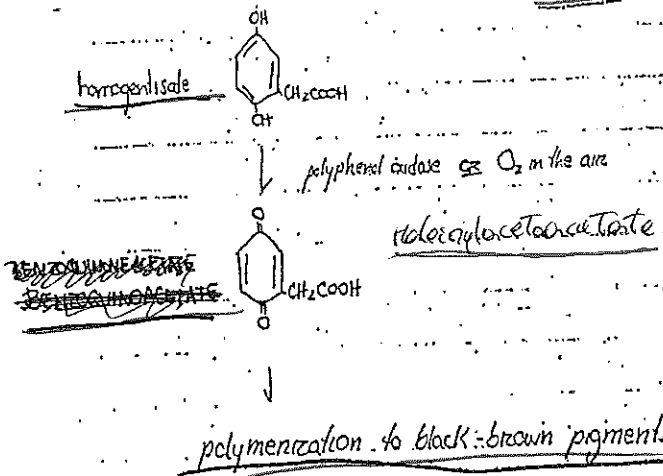 OH
homogentisate
CH2COOH
OH
polyphenol oxidase or O2 in the air
O
Maleoylacetoacetate
BENZOQUINONEACETATE
BENZOQUINOACETATE
CH2COOH
O
polymerization to black-brown pigment